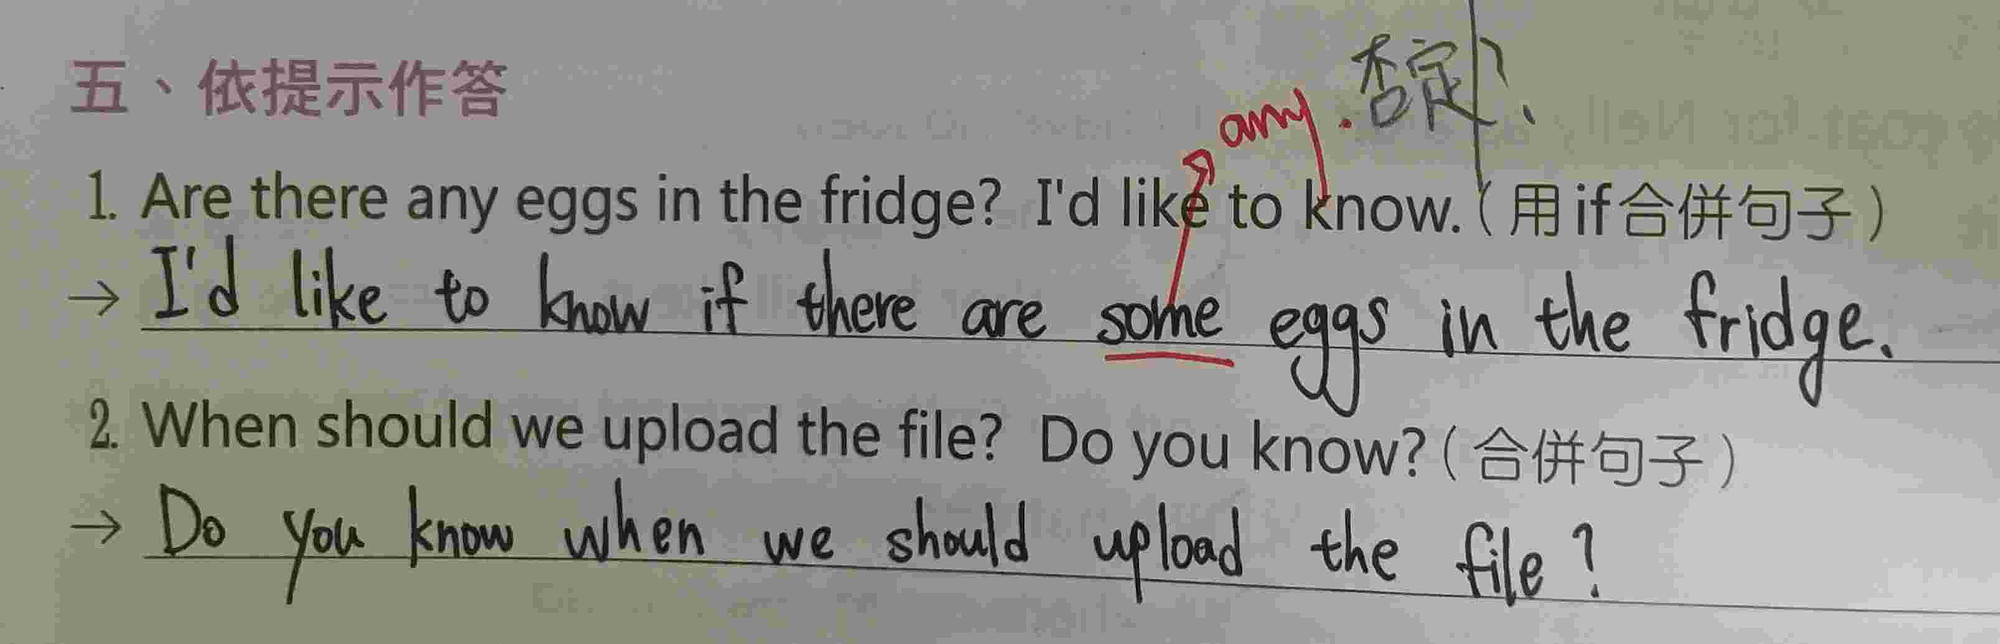 五、依提示作答
any. 否定?、
1. Are there any eggs in the fridge? I'd like to know.(用if合併句子)
→ I'd like to know if there are some eggs in the fridge.
2. When should we upload the file? Do you know?(合併句子)
→ Do you know when we should upload the file?